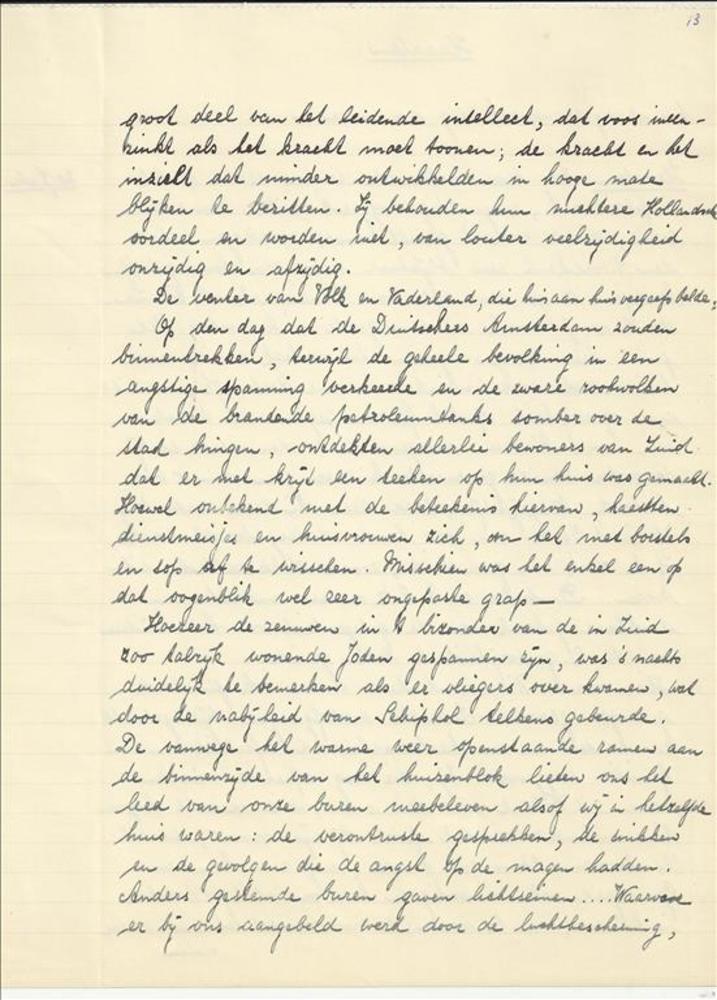 13
groot deel van het leidende intellect, dat voos ineen-
zinkt als het kracht moet toonen; de kracht en het
inzicht dat minder ontwikkelden in hooge mate
blijken te bezitten. Zij behouden hun nuchtere Hollandsch
oordeel en worden niet, van louter veelzijdigheid
onzijdig en afzijdig.
De venter van Volk en Vaderland, die huis aan huis vergeefs belde;
Op den dag dat de Duitschers Amsterdam zouden
binnentrekken, terwijl de geheele bevolking in een
angstige spanning verkeerde en de zware rookwolken
van de brandende petroleumtanks somber over de
stad hingen, ontdekten allerlei bewoners van Zuid
dat er met krijt een teeken op hun huis was gemaakt.
Hoewel onbekend met de beteekenis hiervan, haastten
dienstmeisjes en huisvrouwen zich, om het met borstels
en sop af te wisschen. Misschien was het enkel een op
dat oogenblik wel zeer ongepaste grap —
Hoezeer de zenuwen in 't bizonder van de in Zuid
zoo talrijk wonende Joden gespannen zijn, was 's nachts
duidelijk te bemerken als er vliegers over kwamen, wat
door de nabijheid van Schiphol telkens gebeurde.
De vanwege het warme weer openstaande ramen aan
de binnenzijde van het huizenblok lieten ons het
leed van onze buren meebeleven alsof wij in hetzelfde
huis waren: de verontruste gesprekken, de snikken
en de gevolgen die de angst op de magen hadden.
Anders gestemde buren gaven lichtseinen.... Waarvoor
er bij ons aangebeld werd door de luchtbescherming,